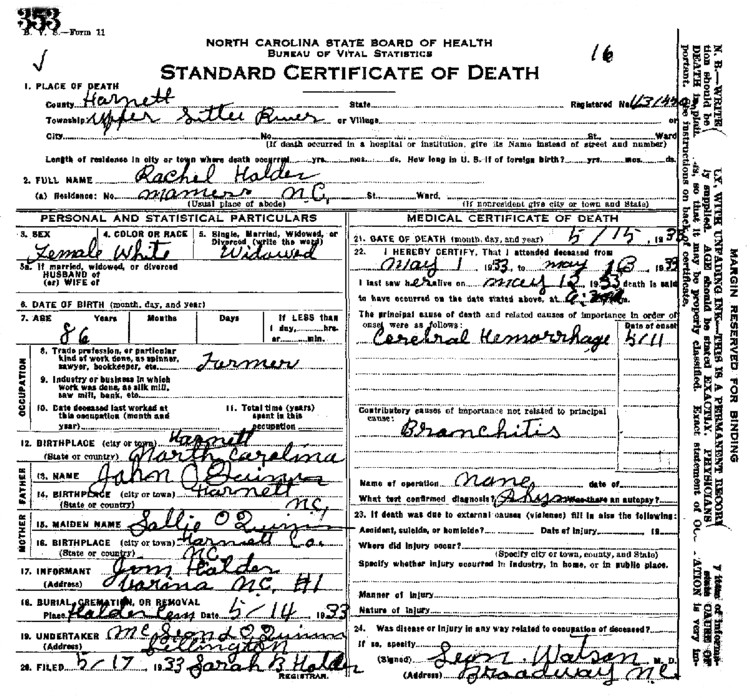 353
B. V. S.—Form 11
NORTH CAROLINA STATE BOARD OF HEALTH
BUREAU OF VITAL STATISTICS
16
STANDARD CERTIFICATE OF DEATH
1. PLACE OF DEATH
County Harnett State Registered No.
Township Upper Little River or Village or
City No. St. Ward
(If death occurred in a hospital or institution, give its Name instead of street and number)
Length of residence in city or town where death occurred yrs. mos. ds. How long in U. S. if of foreign birth? yrs. mos. ds.
2. FULL NAME Rachel Holder
(a) Residence: No. Mamers N.C. St. Ward.
(Usual place of abode) (If nonresident give city or town and State)
PERSONAL AND STATISTICAL PARTICULARS
3. SEX 4. COLOR OR RACE 5. Single, Married, Widowed, or Divorced (write the word)
Female White Widowed
5a. If married, widowed, or divorced
HUSBAND of
(or) WIFE of
6. DATE OF BIRTH (month, day, and year)
7. AGE Years Months Days If LESS than
1 day, hrs.
or min.
86
OCCUPATION
8. Trade profession, or particular
kind of work done, as spinner,
sawyer, bookkeeper, etc. Farmer
9. Industry or business in which
work was done, as silk mill,
saw mill, bank, etc.
10. Date deceased last worked at
this occupation (month and
year)
11. Total time (years)
spent in this
occupation
12. BIRTHPLACE (city or town) Harnett
(State or country) North Carolina
FATHER
13. NAME John O Quinn
14. BIRTHPLACE (city or town) Harnett
(State or country) NC,
MOTHER
15. MAIDEN NAME Sallie O Quinn
16. BIRTHPLACE (city or town) Harnett Co.
(State or country) NC
17. INFORMANT Jim Holder
(Address) Varina N.C. #1
18. BURIAL, CREMATION, OR REMOVAL
Place Holder Cem Date 5/14 1933
19. UNDERTAKER O Quinn
Lillington
20. FILED 5/17 1933 Sarah B Holder
REGISTRAR.
MEDICAL CERTIFICATE OF DEATH
21. DATE OF DEATH (month, day, and year) 5/15, 19
22. I HEREBY CERTIFY, That I attended deceased from
May 1 1933 to May 13 1933
I last saw her alive on May 12 1933 death is said
to have occurred on the date stated above, at
The principal cause of death and related causes of importance in order of
onset were as follows: Date of onset
Cerebral Hemorrhage 5/11
Contributory causes of importance not related to principal
cause:
Bronchitis
Name of operation None date of
What test confirmed diagnosis? Phys Was there an autopsy?
23. If death was due to external causes (violence) fill in also the following:
Accident, suicide, or homicide? Date of injury 19
Where did injury occur?
(Specify city or town, county, and State)
Specify whether injury occurred in industry, in home, or in public place.
Manner of injury
Nature of injury
24. Was disease or injury in any way related to occupation of deceased?
If so, specify
(Signed) Leon Watson M. D.
(Address) Broadway N.C.
MARGIN RESERVED FOR BINDING
N. B.—WRITE WITH UNFADING INK—THIS IS A PERMANENT RECORD